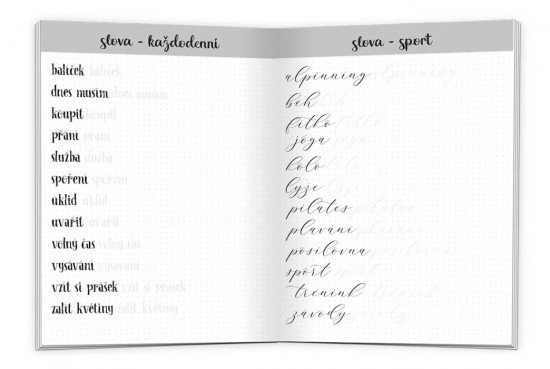 slova - každodenní
balíček balíček
dnes musím musím
koupit koupit
přání přání
služba služba
spoření spoření
úklid úklid
uvařit uvařit
volný čas volný čas
vysávání vysávání
vzít si prášek vzít si prášek
zalít květiny zalít květiny
slova - sport
alpinning alpinning
běh běh
fitko fitko
jóga jóga
kolo kolo
lyže lyže
pilates pilates
plavání plavání
posilovna posilovna
sport sport
trénink trénink
závody závody